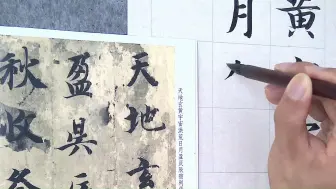 黄
月
天地玄黄宇宙洪荒日月盈昃辰宿列
天地玄
盈昃
秋收冬